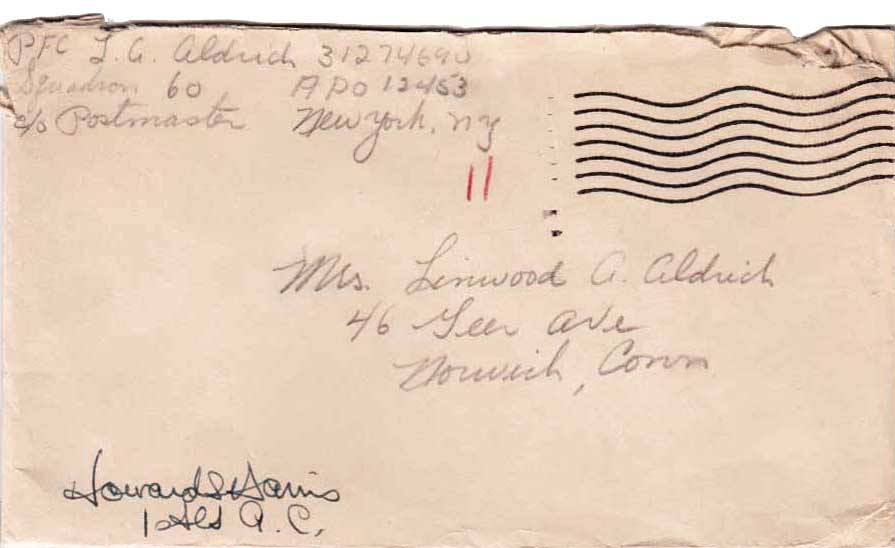 PFC L. A. Aldrich 31274690
Squadron 60 APO 12453
c/o Postmaster New York, NY
11
Mrs. Linwood A. Aldrich
46 Geer Ave
Norwich, Conn
Howard S Harris
1st Lt A. C.